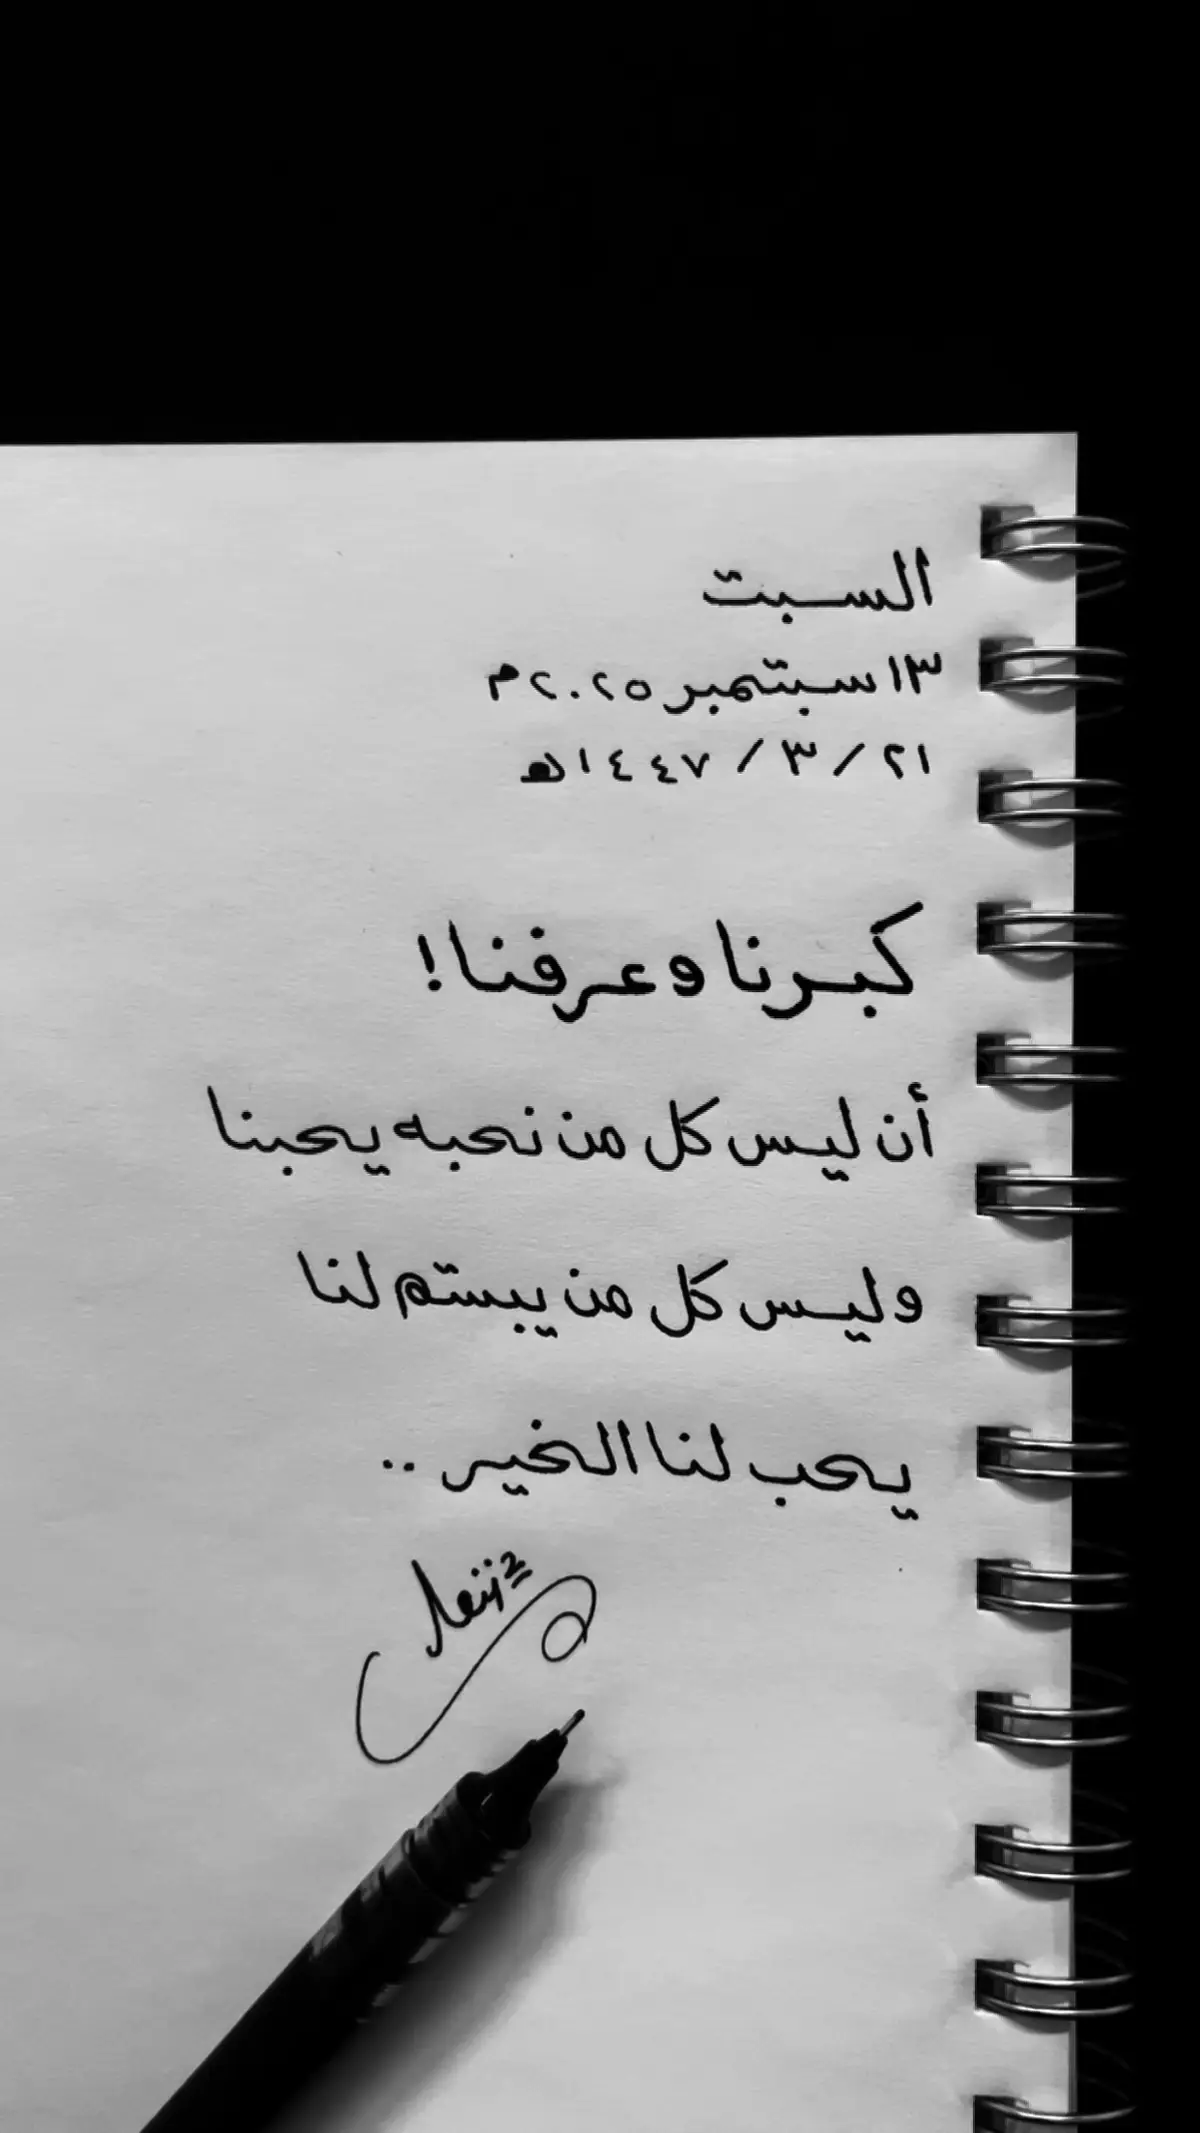 السبت
١٣ سبتمبر ٢٠٢٥م
٢١ / ٣ / ١٤٤٧هـ
كبرنا وعرفنا!
أن ليس كل من نحبه يحبنا
وليس كل من يبستم لنا
يحب لنا الخير ..